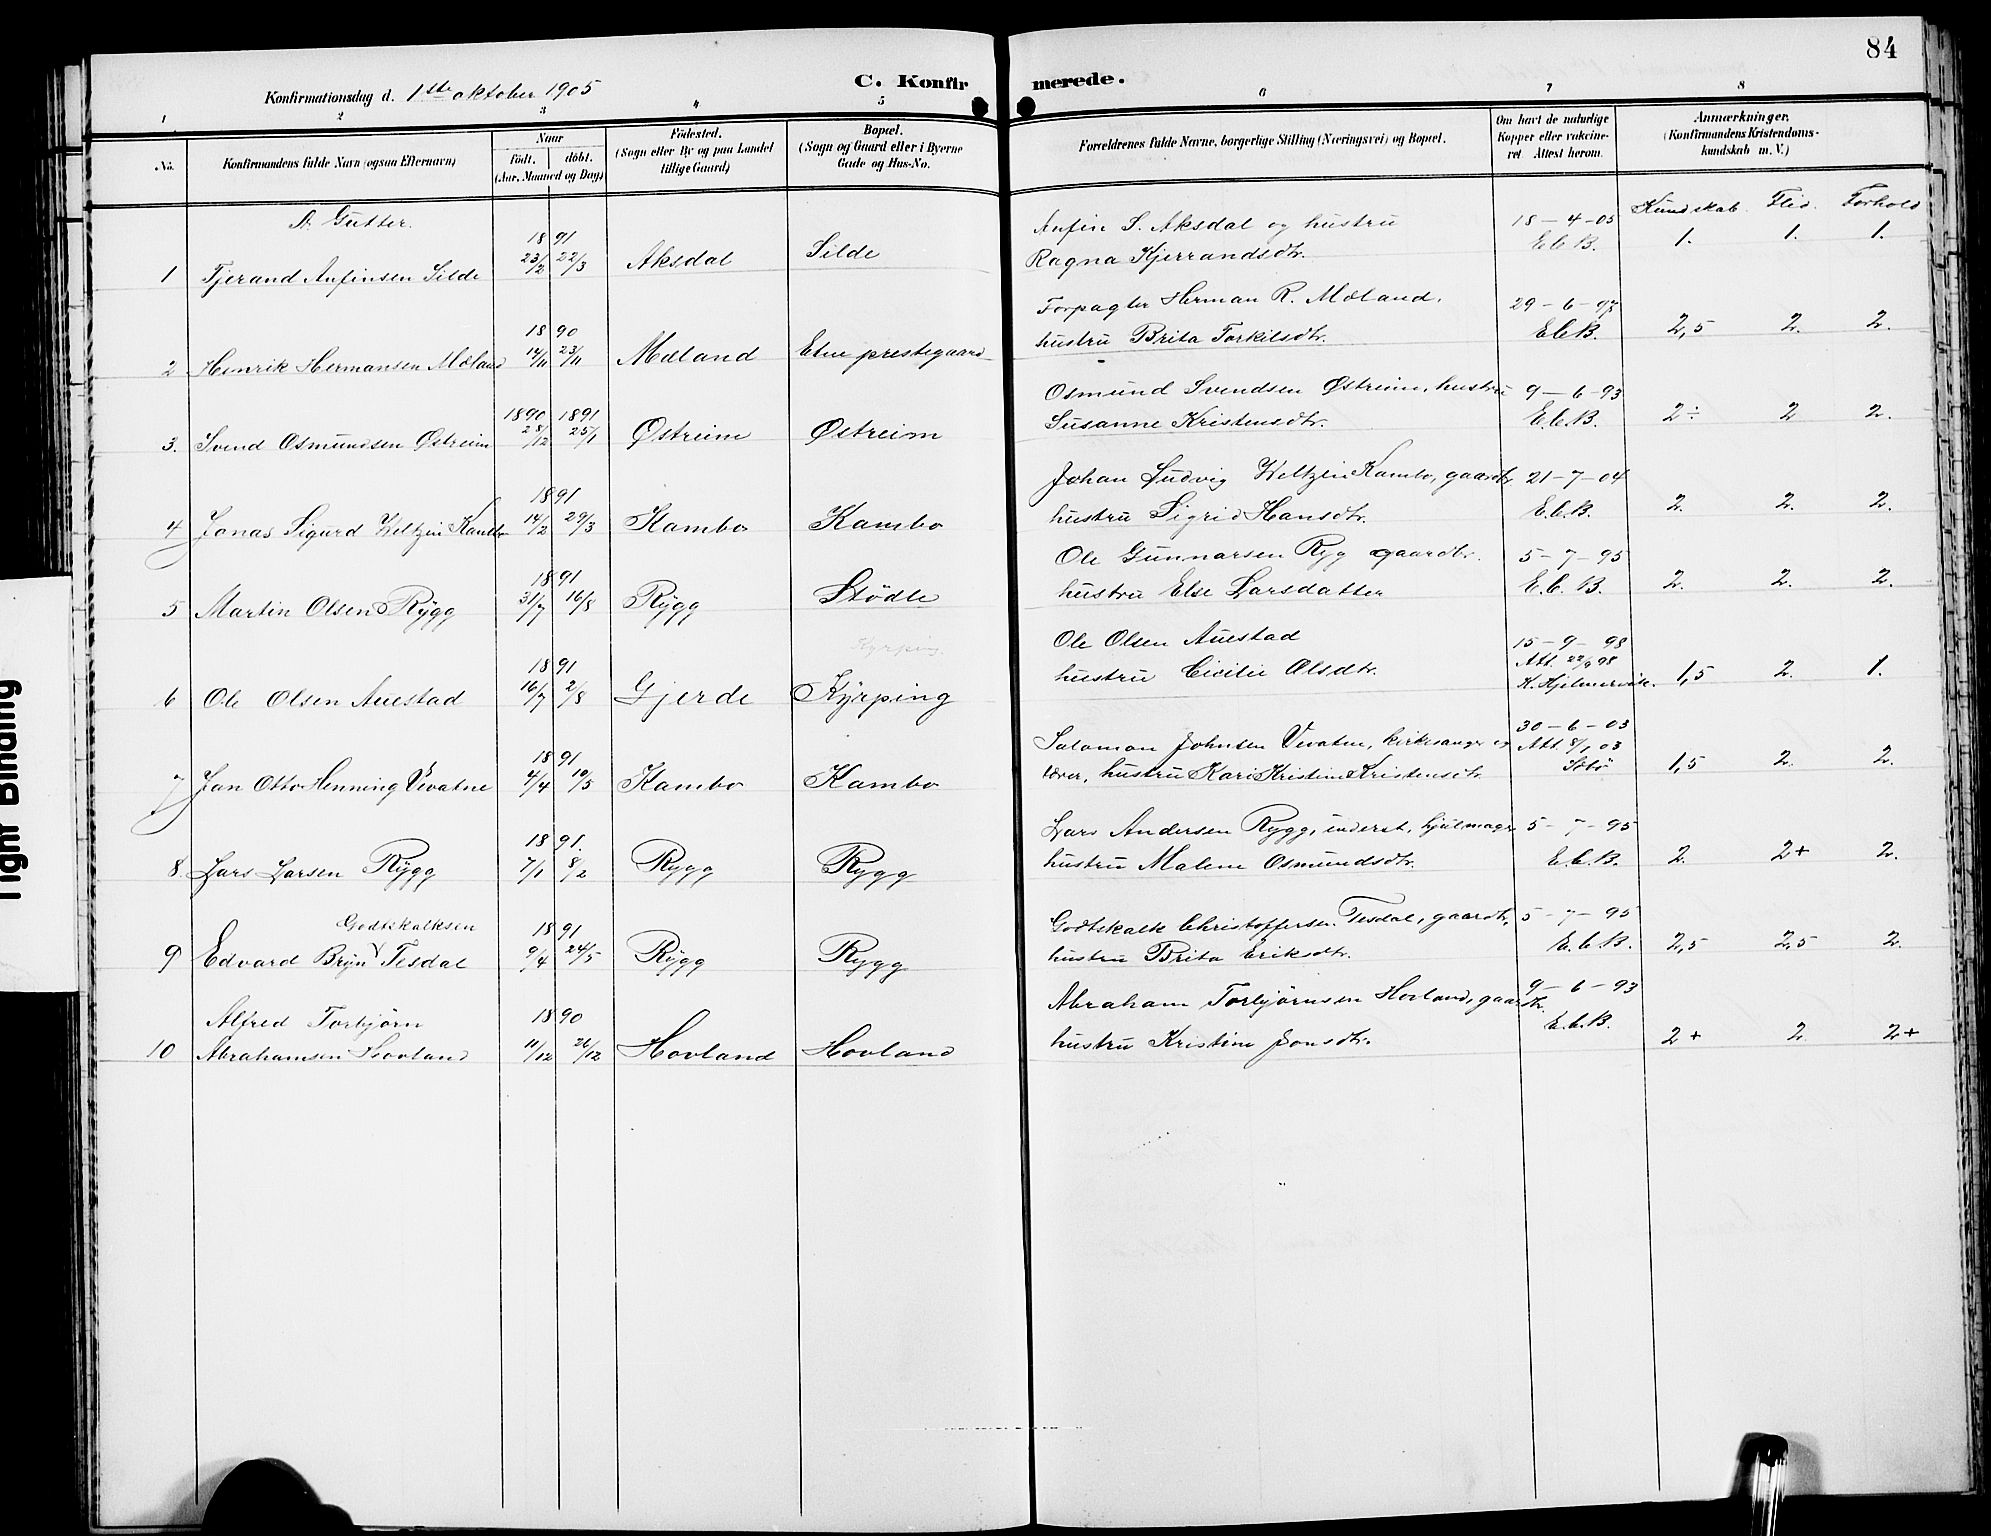 84
Konfirmationsdag d. 1ste oktober 1905
C. Konfirmerede.
1 2 3 4 5 6 7 8
No.
Konfirmandens fulde Navn (ogsaa Efternavn)
Naar
født. döbt.
(Aar, Maaned og Dag)
Födested.
(Sogn eller By og paa Landet
tillige Gaard)
Bopæl.
(Sogn og Gaard eller i Byerne
Gade og Hus-No.
Forældrenes fulde Navne, borgerlige Stilling (Næringsvei) og Bopæl.
Om havt de naturlige
Kopper eller vakcine-
ret. Attest herom.
Anmærkninger.
(Konfirmandens Kristendoms-
kundskab m. V.)
A. Gutter.
Kundskab. Flid. Forhold
1 Tjerand Anfinsen Silde
1891 23/2 22/3
Aksdal Silde
Anfin S. Aksdal og hustru
Ragna Kjerrandsdtr.
18-4-05
E.C.B.
1. 1. 1.
2 Henrik Hermansen Mæland
1890 14/11 23/11
Mæland Etne prestegaard
Forpagter Herman R. Mæland.
hustru Brita Torkilsdtr.
29-6-98
E.C.B.
2,5 2. 2.
3. Svend Osmundsen Østreim
1890 1891
28/12 25/1
Østreim Østreim
Osmund Svendsen Østreim, hustru
Susanne Kristensdtr.
9-6-93
E.C.B.
2÷ 2 2.
4 Jonas Sigurd Weltzin Kambo
1891 14/2 29/3
Kambo Kambo
Johan Ludvig Weltzin Kambo, gaardbr.
hustru Sigrid Hansdtr.
21-7-04
E.C.B.
2. 2. 2.
5 Martin Olsen Rygg
1891 31/7 16/8
Rygg Stödle
Ole Gunnarsen Ryg gaardbr.
hustru Else Larsdatter
5-7-95
E.C.B.
2. 2. 2.
6 Ole Olsen Auestad
1891 16/7 2/8
Gjerde Kyrping
Kyrping
Ole Olsen Auestad
hustru Cicilie Olsdtr.
15-9-98
Att. 22/9 98
K. Hjelmervik.
1,5 2. 1.
7 Jan Otto Henning Vevatne
1891 4/4 10/5
Kambo Kambo
Salomon Johnsen Vevatne, kirkesanger og
lærer, hustru Kari Kristine Kristensdtr.
30-6-03
Att. 8/1 03
Stö
1,5 2. 2.
8 Lars Larsen Rygg
1891. 7/1 8/2
Rygg Rygg
Lars Andersen Rygg, inderst, hjulmager
hustru Malene Osmundsdtr.
5-7-95
E.C.B.
2. 2+ 2.
Godtskalksen
9 Edvard Bryn Tesdal
1891 9/4 24/5
Rygg Rygg
Godtskalk Christoffersen Tesdal, gaardbr.
hustru Brita Eriksdtr.
5-7-95
E.C.B.
2,5 2,5 2.
Alfred Torbjörn
10 Abrahamsen Hovland
1890 11/12 26/12
Hovland Hovland
Abraham Torbjörnsen Hovland, gaardbr.
hustru Kristine Jonsdtr.
9-6-93
E.C.B.
2+ 2. 2+
Tight Binding